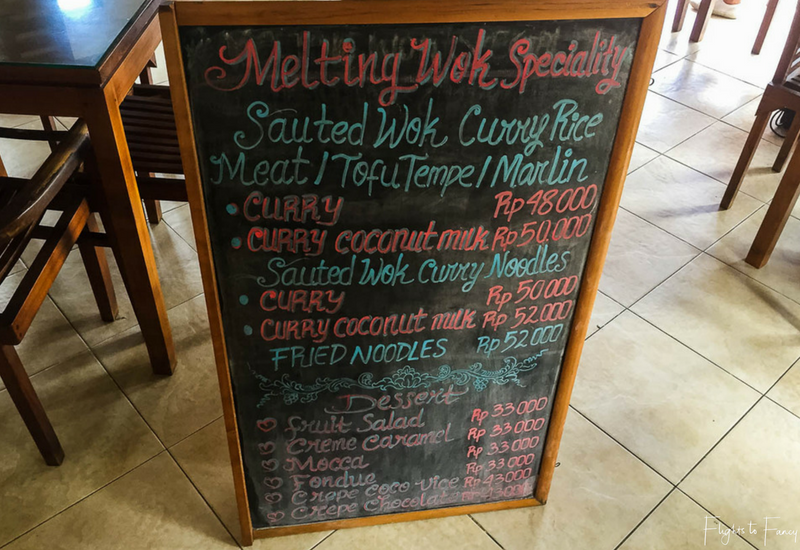 Melting Wok Speciality
Sauted Wok Curry Rice
Meat / Tofu Tempe / Marlin
• CURRY Rp 48 000
• CURRY coconut milk Rp 50.000
Sauted Wok Curry Noodles
• CURRY Rp 50 000
• CURRY coconut milk Rp 52 000
FRIED NOODLES Rp 52 000
Dessert
Fruit Salad Rp 33 000
Creme Caramel Rp 33 000
Mocca Rp 33 000
Fondue Rp 33 000
Crepe coco vice Rp 43 000
Crepe Chocolate
Flights to Fancy